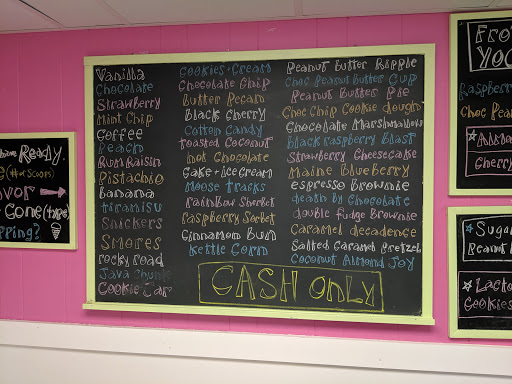 Vanilla
Chocolate
Strawberry
Mint Chip
Coffee
Peach
Rum Raisin
Pistachio
Banana
tiramisu
Snickers
Smores
rocky road
Java Chunk
Cookie Jar
Cookies + Cream
Chocolate Chip
Butter Pecan
Black Cherry
Cotton Candy
toasted Coconut
Hot Chocolate
Cake + ice cream
Moose tracks
rainbow Sherbet
raspberry Sorbet
Cinnamon Bun
Kettle Corn
Peanut butter Ripple
Choc Peanut butter Cup
Peanut Butter Pie
Choc Chip Cookie dough
Chocolate Marshmallow
Black raspberry Blast
Strawberry Cheesecake
Maine Blueberry
espresso Brownie
death by Chocolate
double fudge Brownie
Caramel decadence
Salted Caramel Pretzel
Coconut Almond Joy
CASH ONLY
Have Ready.
(# or Scoops)
vor
Cone (type)
pping?
Fro
YO
Raspberry
Choc Pean
Almo
Cherry
Sugar
Peanut B
Lacto
Cookies